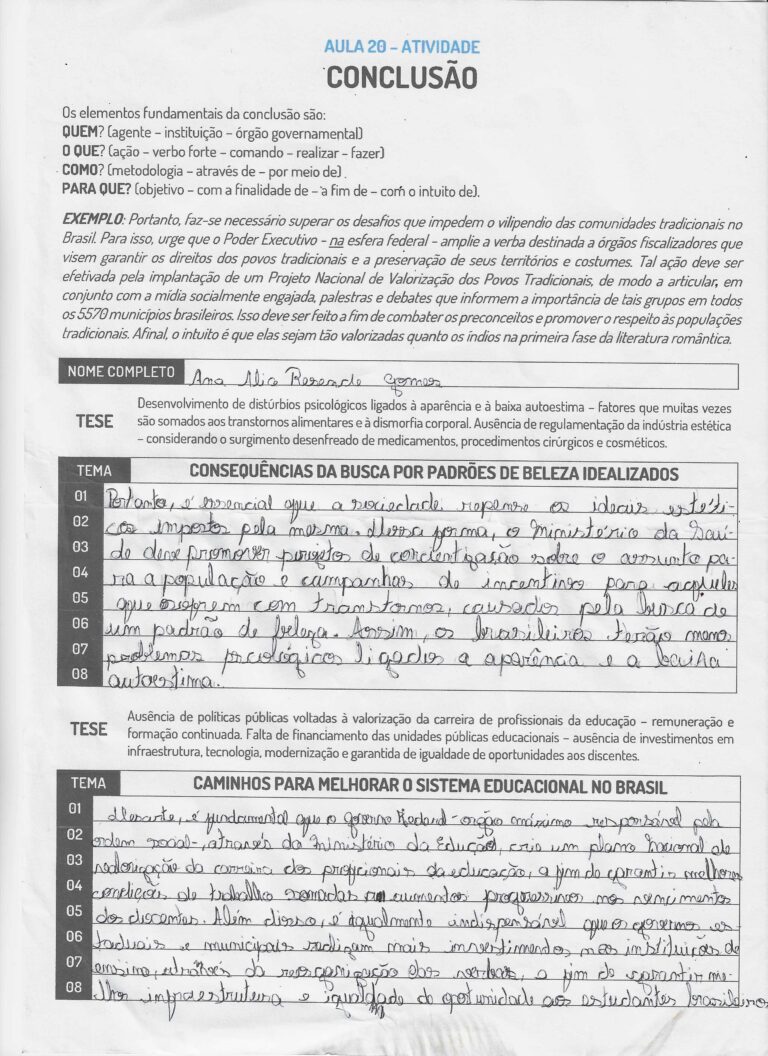 AULA 20 – ATIVIDADE
CONCLUSÃO
Os elementos fundamentais da conclusão são:
QUEM? (agente – instituição – órgão governamental)
O QUE? (ação – verbo forte – comando – realizar – fazer)
COMO? (metodologia – através de – por meio de)
PARA QUE? (objetivo – com a finalidade de – a fim de – com o intuito de).
EXEMPLO: Portanto, faz-se necessário superar os desafios que impedem o vilipendio das comunidades tradicionais no
Brasil. Para isso, urge que o Poder Executivo - na esfera federal - amplie a verba destinada a órgãos fiscalizadores que
visem garantir os direitos dos povos tradicionais e a preservação de seus territórios e costumes. Tal ação deve ser
efetivada pela implantação de um Projeto Nacional de Valorização dos Povos Tradicionais, de modo a articular, em
conjunto com a mídia socialmente engajada, palestras e debates que informem a importância de tais grupos em todos
os 5570 municípios brasileiros. Isso deve ser feito a fim de combater os preconceitos e promover o respeito às populações
tradicionais. Afinal, o intuito é que elas sejam tão valorizadas quanto os índios na primeira fase da literatura romântica.
NOME COMPLETO Ana Alice Resende Gomes
TESE Desenvolvimento de distúrbios psicológicos ligados à aparência e à baixa autoestima – fatores que muitas vezes
são somados aos transtornos alimentares e à dismorfia corporal. Ausência de regulamentação da indústria estética
– considerando o surgimento desenfreado de medicamentos, procedimentos cirúrgicos e cosméticos.
TEMA CONSEQUÊNCIAS DA BUSCA POR PADRÕES DE BELEZA IDEALIZADOS
01 Portanto, é essencial que a sociedade repense os ideais estéti-
02 cos impostos pela mesma. Dessa forma, o Ministério da Saú-
03 de deve promover projetos de concientização sobre o assunto pa-
04 ra a população e campanhas de incentivo para aqueles
05 que sofrem com transtornos, causados pela busca de
06 um padrão de beleza. Assim, os brasileiros terão menos
07 problemas psicológicos ligados a aparência e a baixa
08 autoestima.
TESE Ausência de políticas públicas voltadas à valorização da carreira de profissionais da educação – remuneração e
formação continuada. Falta de financiamento das unidades públicas educacionais – ausência de investimentos em
infraestrutura, tecnologia, modernização e garantida de igualdade de oportunidades aos discentes.
TEMA CAMINHOS PARA MELHORAR O SISTEMA EDUCACIONAL NO BRASIL
01 Desarte, é fundamental que o governo Federal - orgão máximo responsável pela
02 ordem social -, através do Ministério da Edução, crie um plano Nacional de
03 valorização da carreira dos proficionais da educação, a fim de garantir melhores
04 condições de trabalho somadas a aumentos progressivos nos vencimentos
05 dos docentes. Além disso, é igualmente indispensável que os governos es-
06 taduais e municipais realizem mais investimentos nas instituições de
07 ensino, através da reorganização das verbas, a fim de garantir me-
08 lhor infraestrutura e igualdade de oportunidade aos estudantes brasileiros